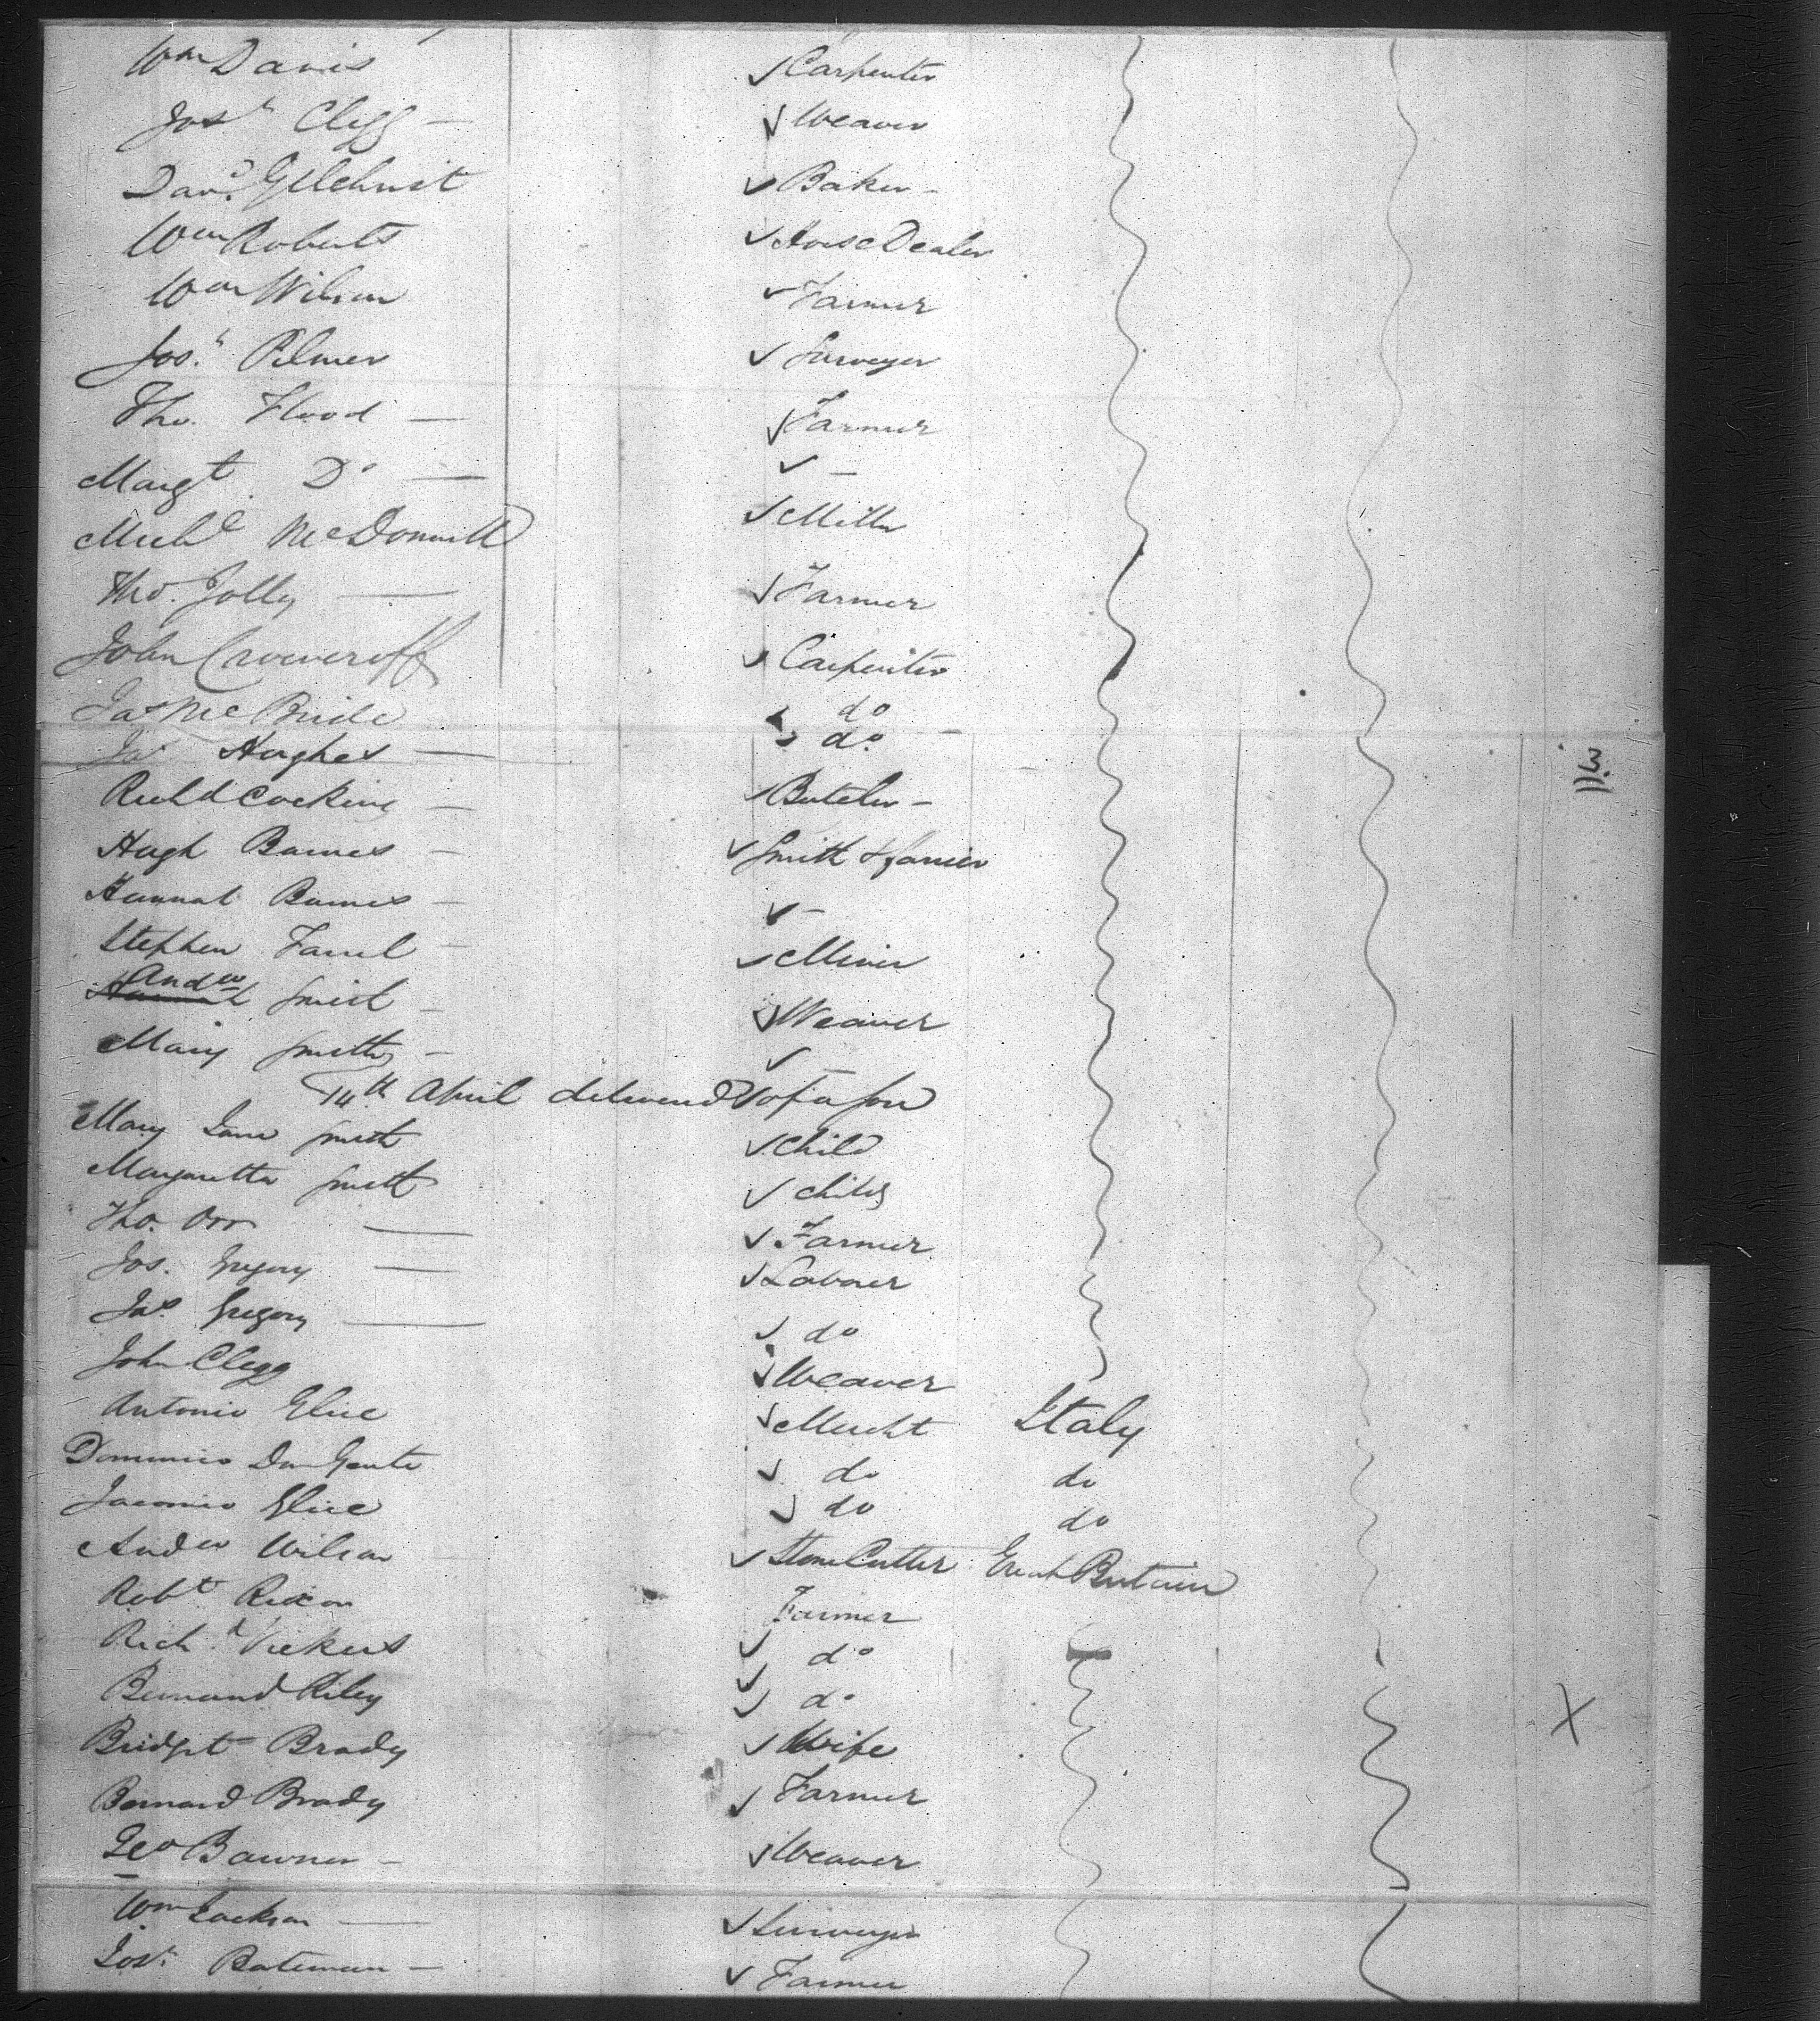 Wm Davis Carpenter
Josh Clegg — Weaver
Davd. Gilchrist Baker -
Wm Roberts Horse Dealer
Wm Wilson Farmer
Josh. Pilmer Surveyor
Tho. Flood — Farmer
Margt. Do — -
Michl McDonnell Miller
Tho. Jolly — Farmer
John Carpenter
Jas McBride do
Jas Hughes — do.
Richd Cocking — Butcher -
Hugh Barnes - Smith & farrier
Hannah Barnes - -
Stephen Farrel - Miner
Andw Smith - Weaver
Mary Smith -
14th April delivered of a Son
Mary Jane Smith Child
Margaretta Smith child
Tho. Orr — Farmer
Jos. Gregory — Laborer
Jas Gregory — do
John Clegg Weaver
Antonio Elice Mercht Italy
Dominico do do
Elice do do
Andw Wilson Stone Cutter Great Britain
Robt Rixon Farmer
Richd Vickers do
Bernard Riley do
Bridget Brady Wife
Bernard Brady Farmer
Geo Bawner - Weaver
Wm Jackson — Surveyor
Josh. Bateman — Farmer
13.
X